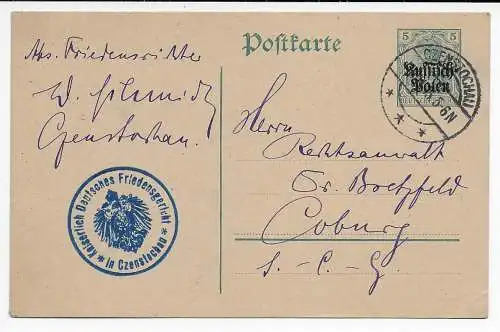 Abs. Friedensrichter
W. Schmidt
Czenstochau.
Postkarte
5
Russisch-
Polen
CZENSTOCHAU
Herrn
Rechtsanwalt
Dr. Bretzfeld
Coburg
S.-C.-G.
Kaiserlich Deutsches Friedensgericht
* in Czenstochau *